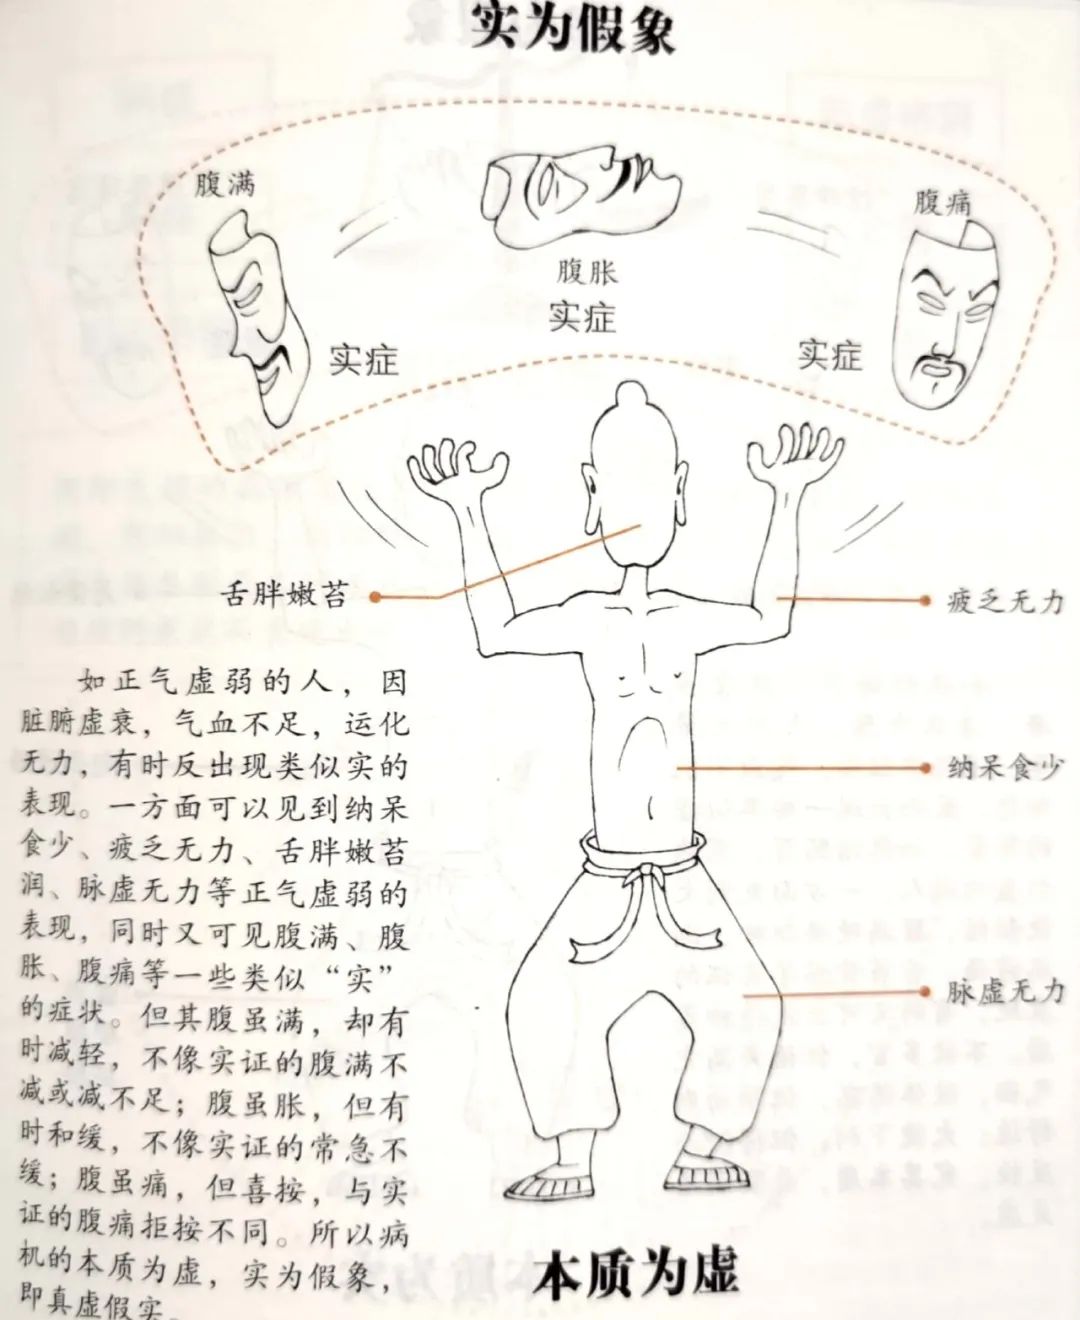 实为假象
腹满
腹痛
腹胀
实症
实症
实症
舌胖嫩苔
疲乏无力
纳呆食少
脉虚无力
如正气虚弱的人，因
脏腑虚衰，气血不足，运化
无力，有时反出现类似实的
表现。一方面可以见到纳呆
食少、疲乏无力、舌胖嫩苔
润、脉虚无力等正气虚弱的
表现，同时又可见腹满、腹
胀、腹痛等一些类似“实”
的症状。但其腹虽满，却有
时减轻，不像实证的腹满不
减或减不足；腹虽胀，但有
时和缓，不像实证的常急不
缓；腹虽痛，但喜按，与实
证的腹痛拒按不同。所以病
机的本质为虚，实为假象，
即真虚假实。
本质为虚